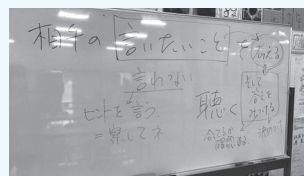 相手の 言いたいこと を考える
言わない
ヒントを言う
=察してネ
聴く
そして
答えを